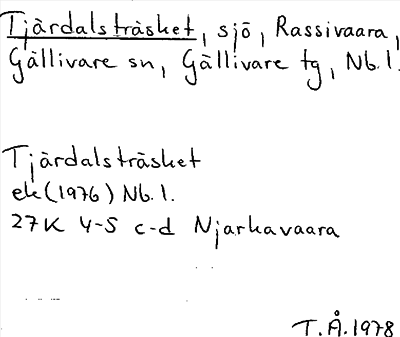 Tjärdalsträsket, sjö, Rassivaara,
Gällivare sn, Gällivare tg, Nb.l.
Tjärdalsträsket
ek (1976) Nb.l.
27K 4-5 c-d Njarkavaara
T.Å.1978